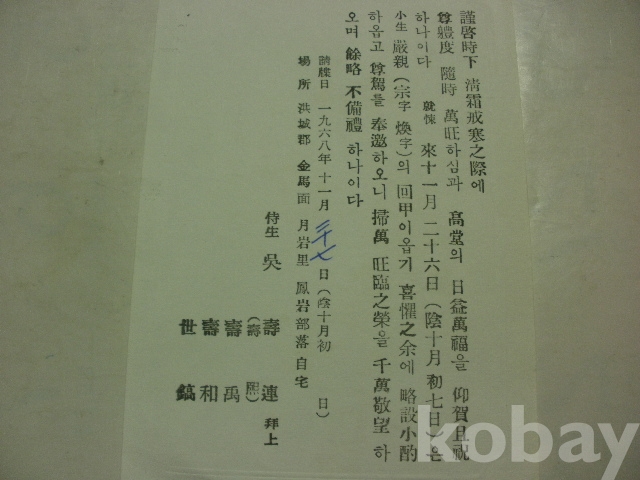 謹啓時下 淸霜戒寒之際에
尊軆度 隨時 萬旺하심과 高堂의 日益萬福을 仰賀且祝
하나이다 就悚 來十一月 二十六日(陰十月初七日)은
小生 嚴親(宗字 煥字)의 回甲이옵기 喜懼之余에 略設小酌
하옵고 尊駕를 奉邀하오니 掃萬 旺臨之榮을 千萬敬望 하
오며 餘略 不備禮 하나이다
請牒日 一九六八年 十一月 二十七 日(陰十月初 日)
場所 洪城郡 金馬面 月岩里 鳳岩部落 自宅
侍生 吳 壽連 拜上
(壽熙)
壽禹
壽和
世鎬
kobay